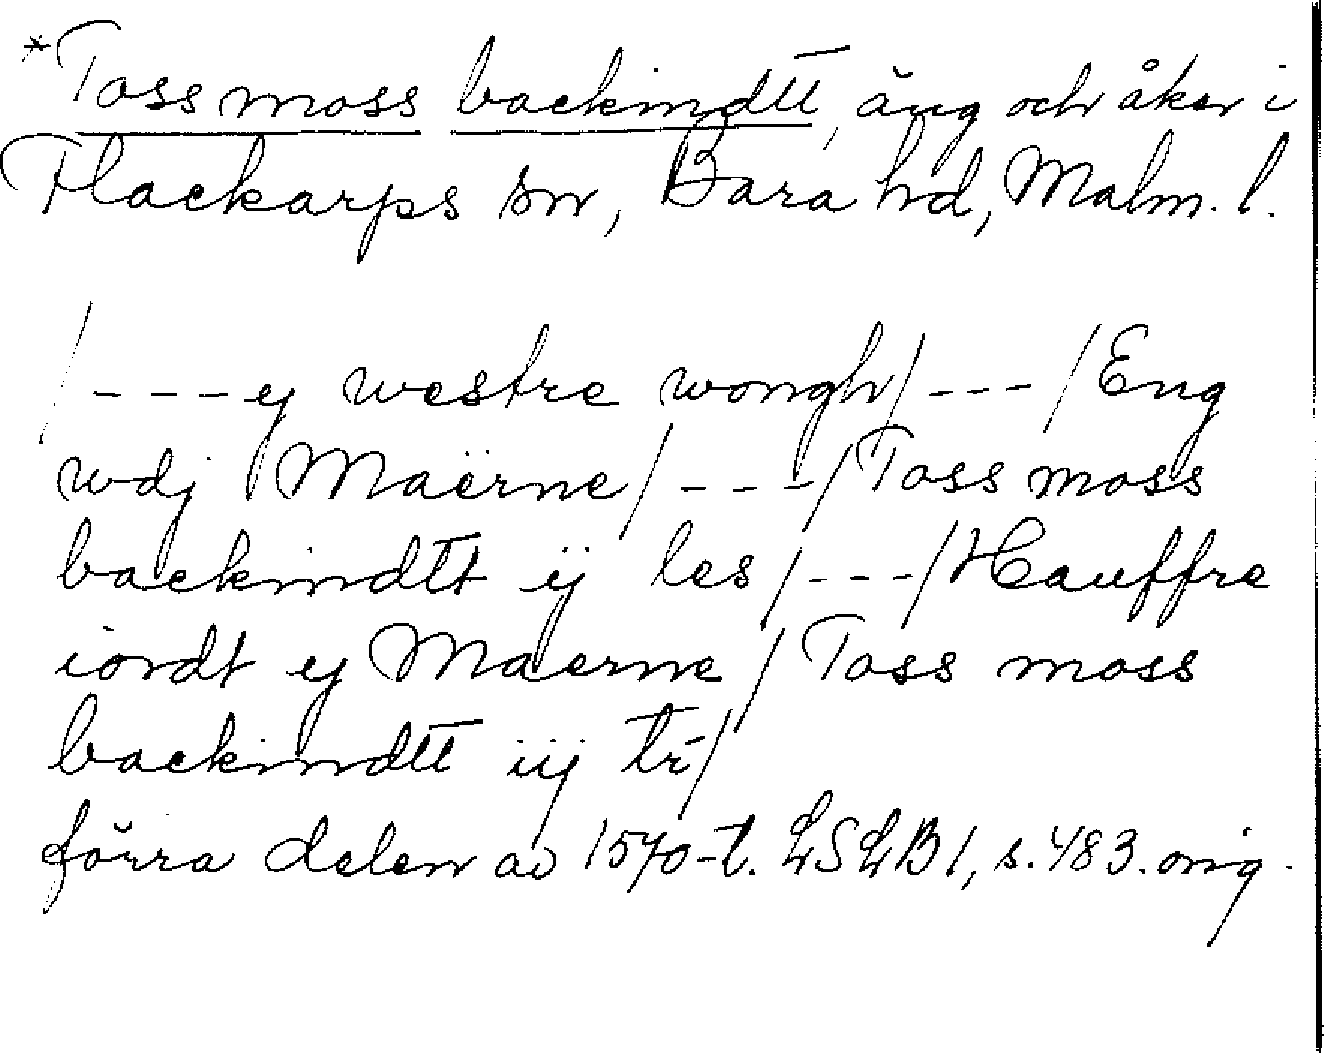 *Toss moss backindtt, äng och åker i
Flackarps sn, Bara hd, Malm. l.
/---ej westre wongh/---/Eng
wdj Maërne/---/Toss moss
backindtt ij les/---/Hauffre
iordt ej Maerne/Toss moss
backindtt iij tr/
förra delen av 1570-t. LSLB1, s. 483. orig.